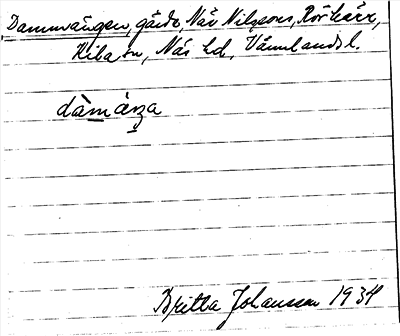 Dammvången, gärde, När Nilssons, Rörkärr,
Kila sn, Näs hd, Värmlands l.
dàmáŋa
Britta Johansson 1934